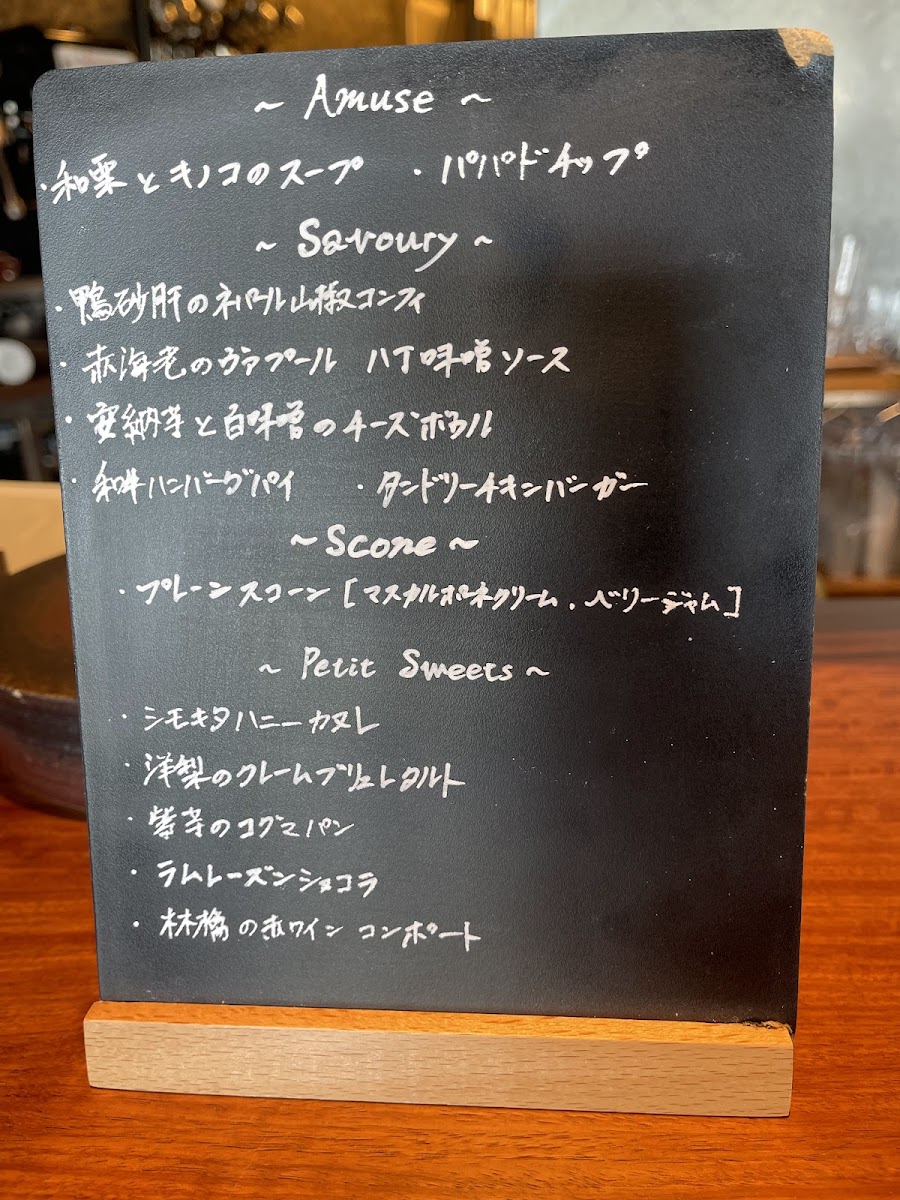 ~ Amuse ~
・和栗とキノコのスープ ・パパドチップ
~ Savoury ~
・鴨砂肝のネパール山椒コンフィ
・赤海老のヴァプール 八丁味噌ソース
・安納芋と白味噌のチーズボウル
・和牛ハンバーグパイ ・タンドリーチキンバーガー
~ Scone ~
・プレーンスコーン [マスカルポーネクリーム、ベリージャム]
~ Petit Sweets ~
・シモキタハニーカヌレ
・洋梨のクレームブリュレタルト
・紫芋のコグマパン
・ラムレーズンショコラ
・林檎の赤ワインコンポート